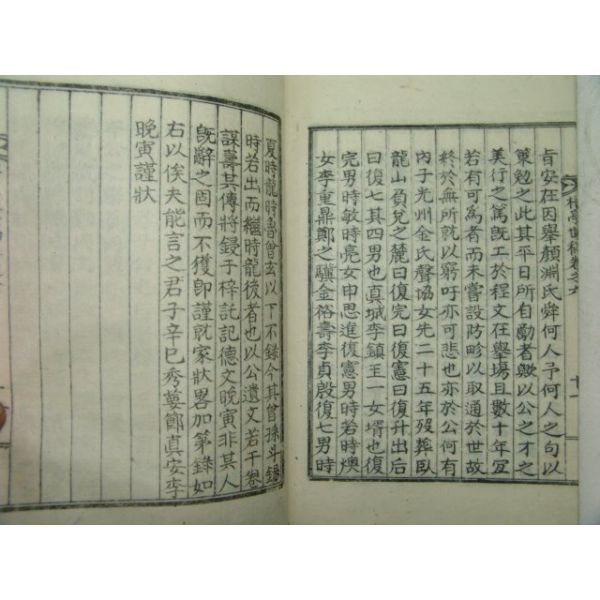 肯安在因擧顔淵氏舜何人予何人之句以
策勉之此其平日所自勵者歟以公之才之
美行之篤旣工於程文在擧場且數十年冝
若有可爲者而未嘗設防畛以取通於世故
終於無所就以窮吁亦可悲也亦於公何有
內子光州金氏聲協女先二十五年歿葬臥
龍山負兌之麓曰復完曰復憲曰復升出后
曰復七其四男也真城李鎭王一女壻也復
完男時敏時亮女申思進復憲男時若時燠
女李重鼎鄭之驥金裕壽李貞殷復七男時
夏時龍時魯曾玄以下不錄今其曾孫斗
時若出而繼時龍後者也以公遺文若干卷
謀壽其傳將鋟于梓託記德文晩寅非其人
旣辭之固而不獲卽謹就家狀畧加第錄如
右以俟夫能言之君子辛巳秀葽鄭真安李
晩寅謹狀